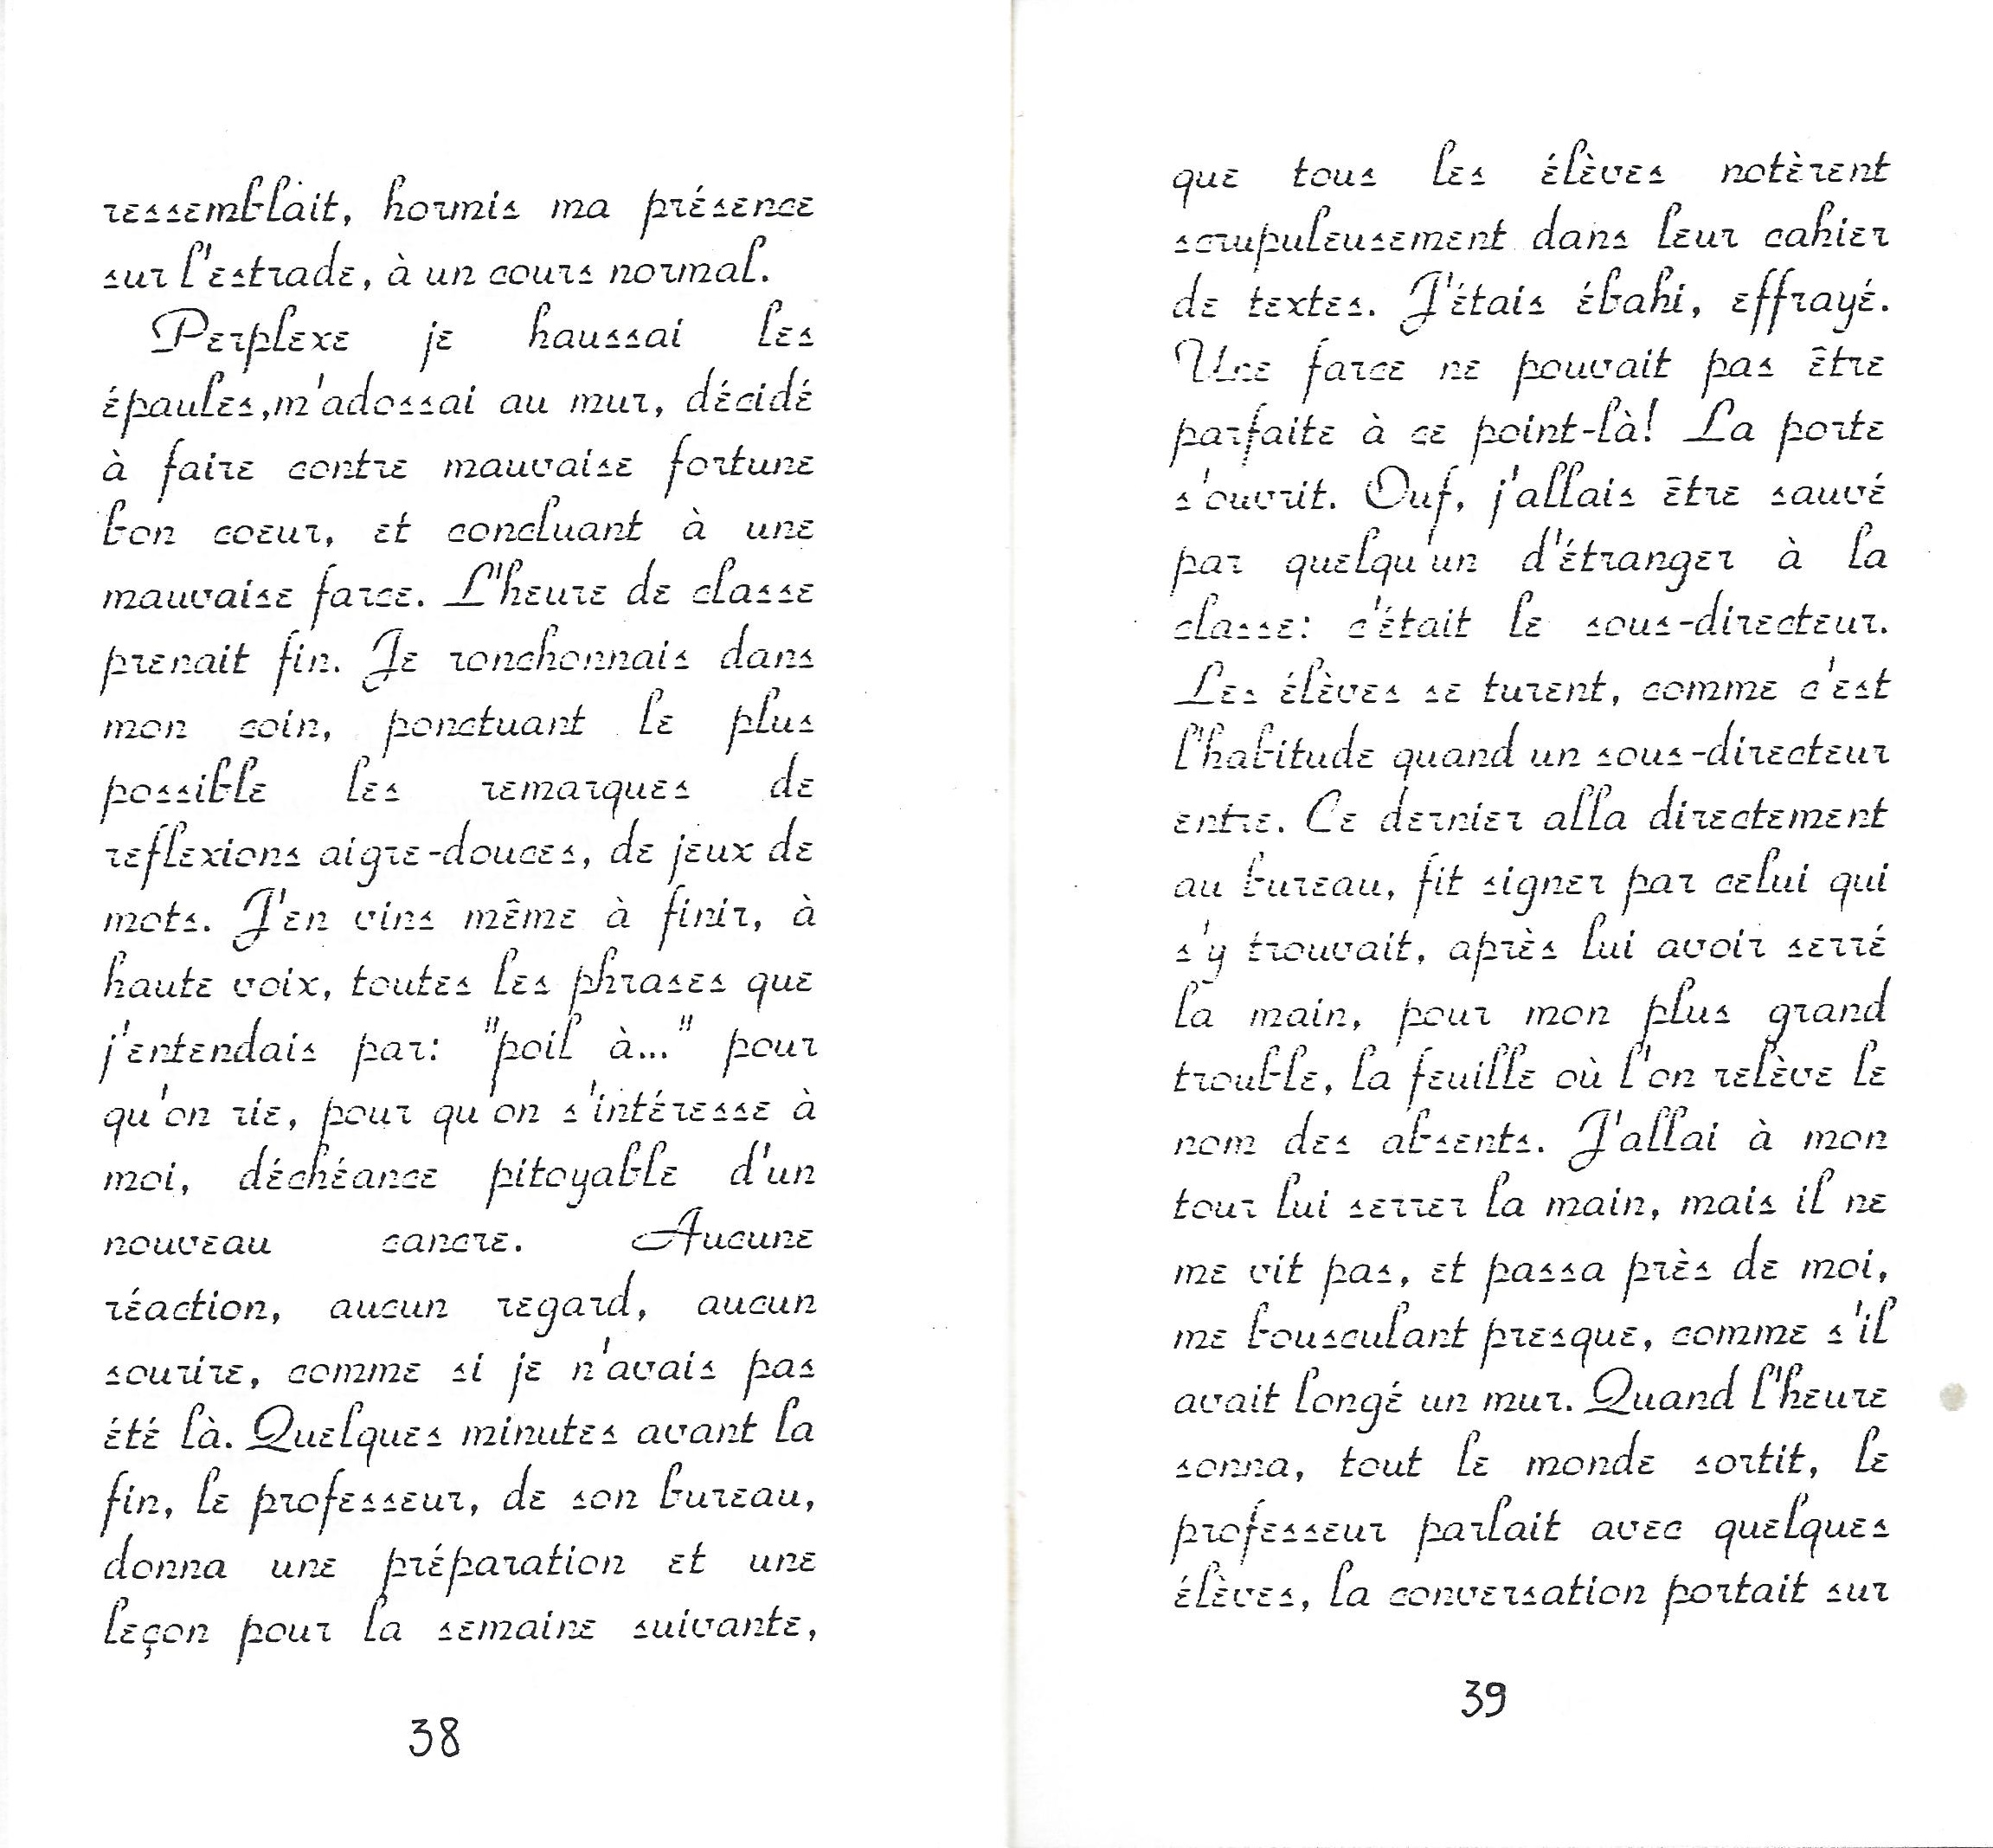 ressemblait, hormis ma présence
sur l'estrade, à un cours normal.
Perplexe je haussai les
épaules,m'adossai au mur, décidé
à faire contre mauvaise fortune
bon coeur, et concluant à une
mauvaise farce. L'heure de classe
prenait fin. Je ronchonnais dans
mon coin, ponctuant le plus
possible les remarques de
reflexions aigre-douces, de jeux de
mots. J'en vins même à finir, à
haute voix, toutes les phrases que
j'entendais par: "poil à..." pour
qu'on rie, pour qu'on s'intéresse à
moi, déchéance pitoyable d'un
nouveau cancre. Aucune
réaction, aucun regard, aucun
sourire, comme si je n'avais pas
été là. Quelques minutes avant la
fin, le professeur, de son bureau,
donna une préparation et une
leçon pour la semaine suivante,
38
que tous les élèves notèrent
scrupuleusement dans leur cahier
de textes. J'étais ébahi, effrayé.
Une farce ne pouvait pas être
parfaite à ce point-là! La porte
s'ouvrit. Ouf, j'allais être sauvé
par quelqu'un d'étranger à la
classe: c'était le sous-directeur.
Les élèves se turent, comme c'est
l'habitude quand un sous-directeur
entre. Ce dernier alla directement
au bureau, fit signer par celui qui
s'y trouvait, après lui avoir serré
la main, pour mon plus grand
trouble, la feuille où l'on relève le
nom des absents. J'allai à mon
tour lui serrer la main, mais il ne
me vit pas, et passa près de moi,
me bousculant presque, comme s'il
avait longé un mur. Quand l'heure
sonna, tout le monde sortit, le
professeur parlait avec quelques
élèves, la conversation portait sur
39